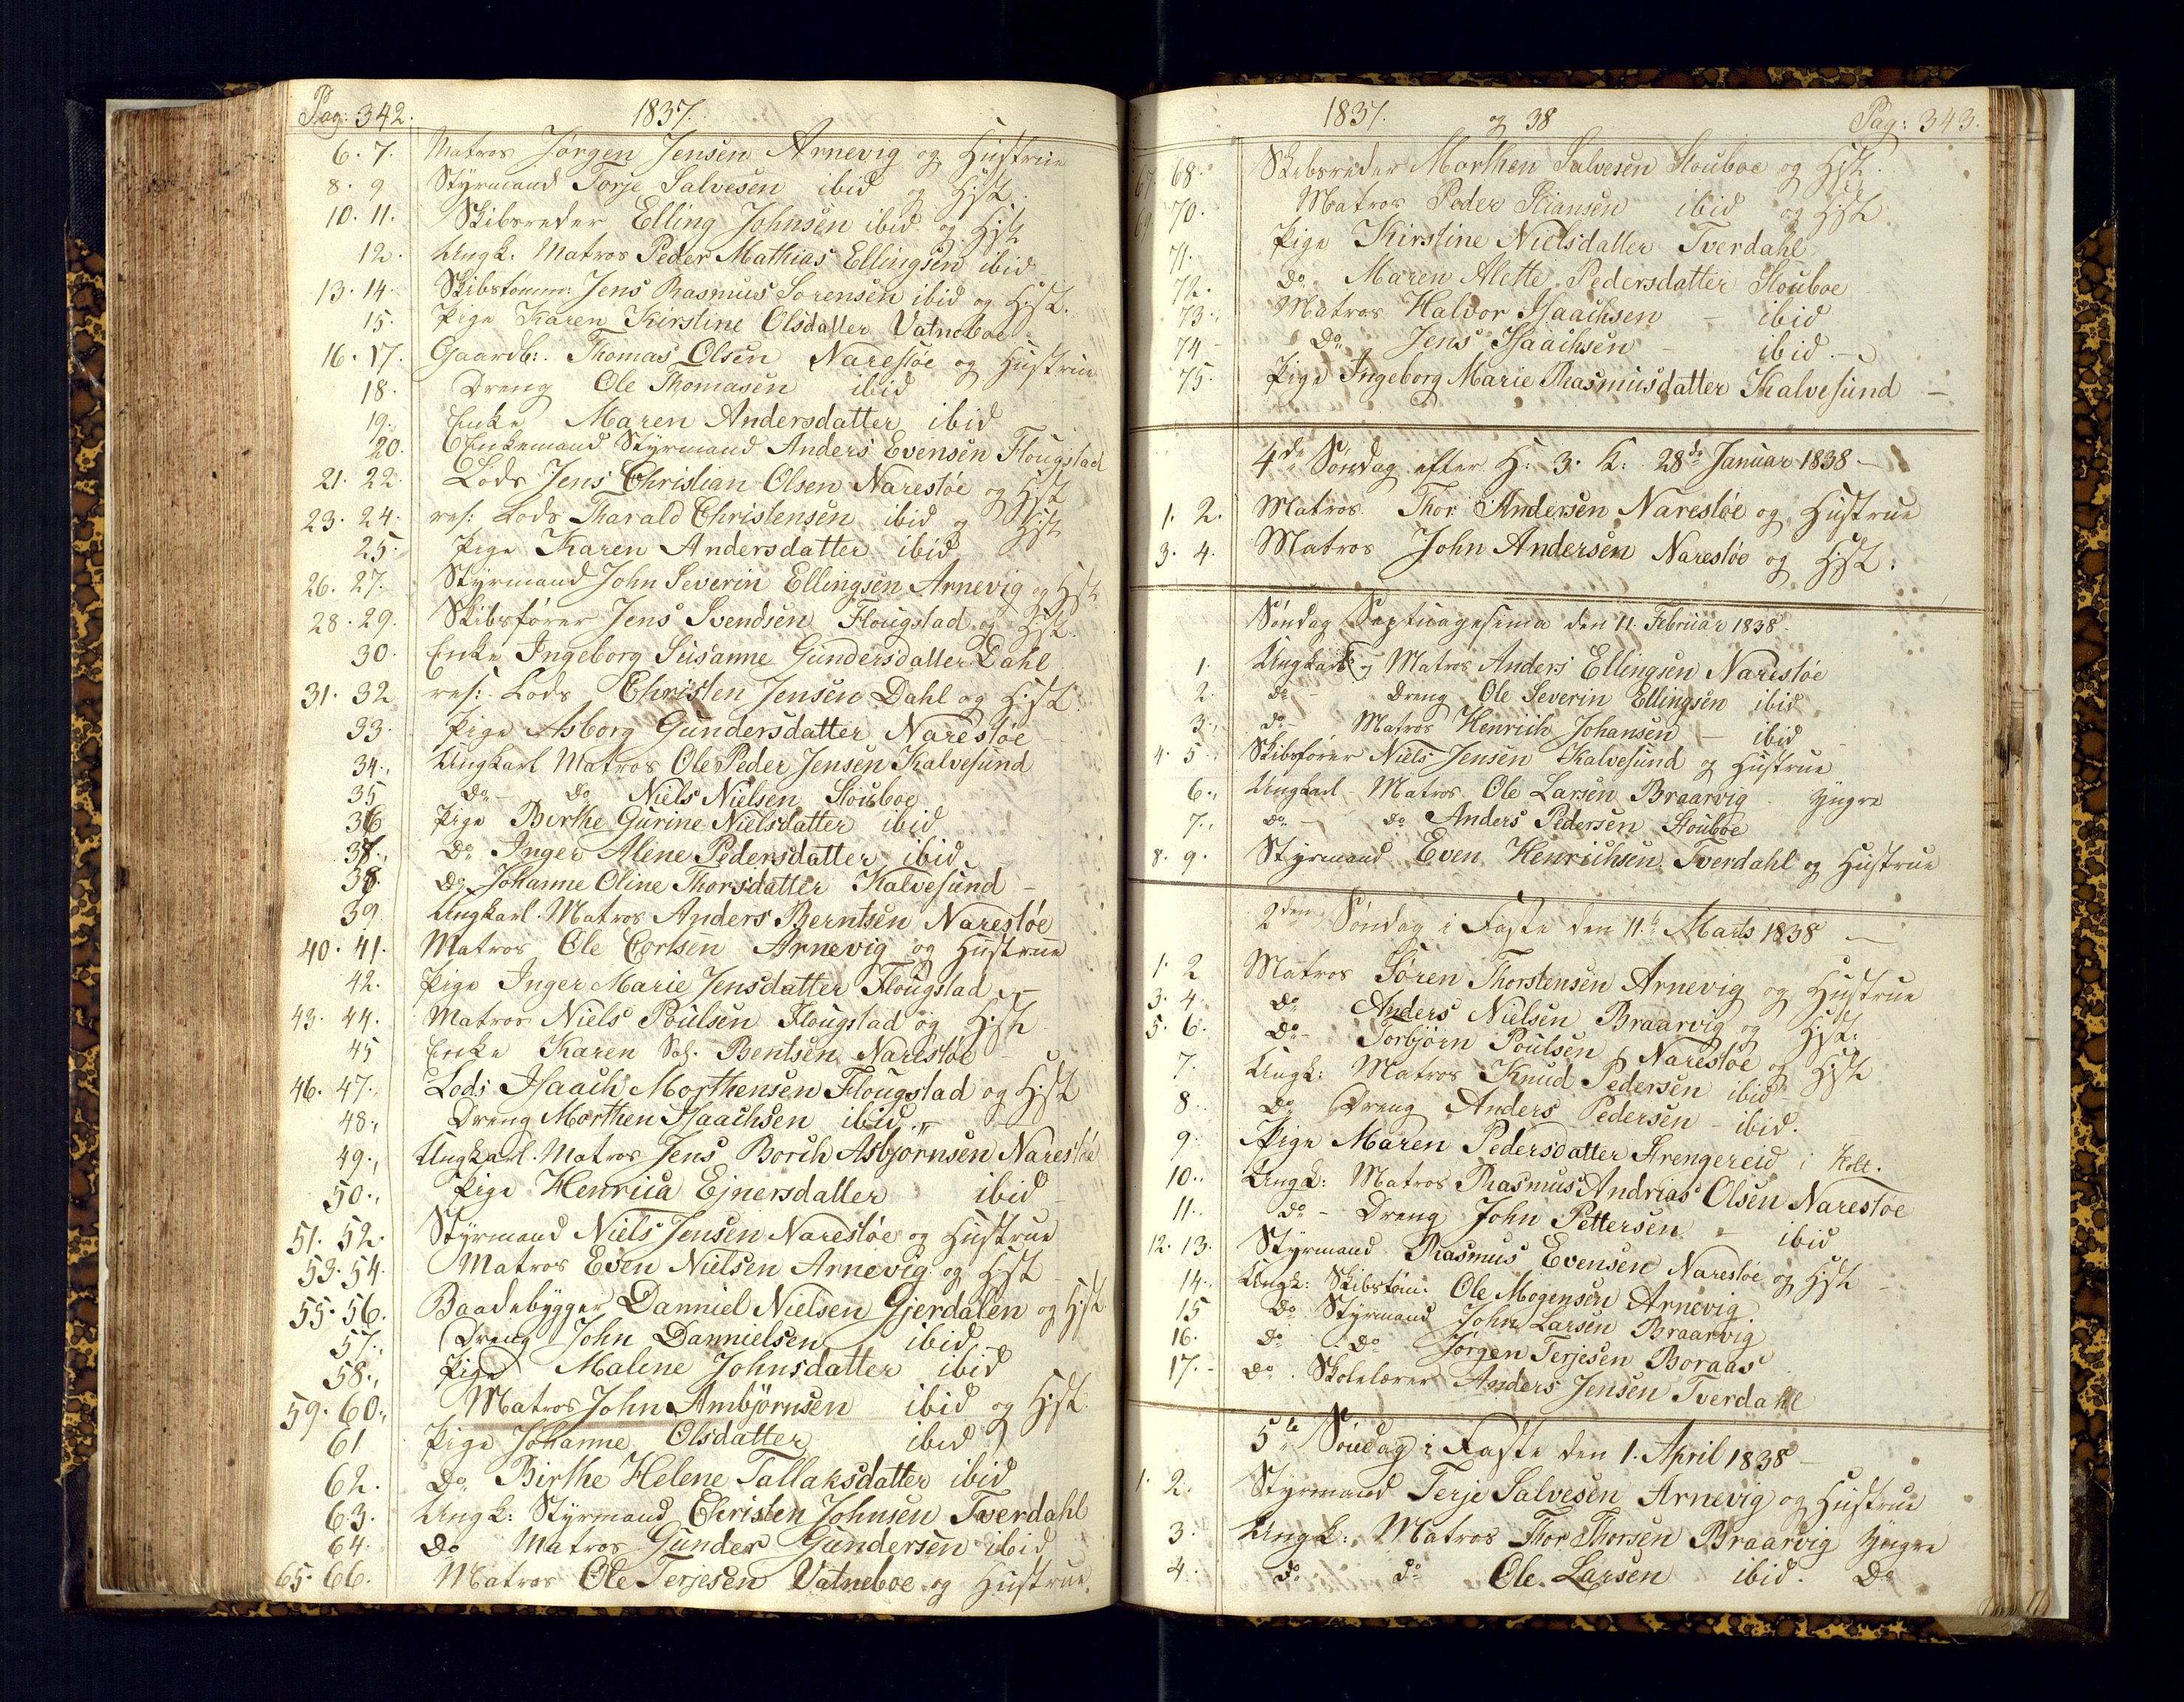 Pag: 342.
1837.
6. 7. Matros Jörgen Jensen Arnevig og Hustrue
8. 9 Styrmand Torje Salvesen ibid og Hst.
10. 11. Skibsreder Elling Johnsen ibid og Hst
12. Ungk. Matros Peder Mathias Ellingsen ibid
13. 14. Skibstömm: Jens Rasmus Sorensen ibid og Hst.
15. Pige Karen Kirstine Olsdatter Vatneboe
16. 17. Gaardb:. Thomas Olsen Narestöe og Hustrue
18. Dreng Ole Thomasen ibid
19. Enke Maren Andersdatter ibid
20. Enkemand Styrmand Anders Evensen Flougstad
21. 22. Lods Jens Christian Olsen Narestöe og Hst
23. 24. res: Lods Tharald Christensen ibid og Hst
25. Pige Karen Andersdatter ibid
26. 27. Styrmand John Severin Ellingsen Arnevig og Hst
28. 29. Skibsförer Jens Svendsen Flougstad og Hst.
30. Enke Ingeborg Susanne Gundersdatter Dahl
31. 32 res: Lods Christen Jensen Dahl og Hst.
33. Pige Asborg Gundersdatter Narestöe -
34., Ungkarl Matros Ole Peder Jensen Kalvesund
35 do - do Niels Nielsen Stouboe
36 Pige Birthe Gurine Nielsdatter ibid
37. Do Inger Alene Pedersdatter ibid
38. do Johanne Oline Thorsdatter Kalvesund -
39 Ungkarl. Matros Anders Berntsen Narestöe
40. 41. Matros Ole Cortsen Arnevig og Hustrue
42. Pige Inger Marie Jensdatter Flougstad -
43. 44. Matros Niels Poulsen Flougstad og Hst
45 Enke Karen Sal. Bentsen Narestöe -
46. 47., Lods Isaach Morthensen Flougstad og Hst
48., Dreng Morthen Isaachsen ibid.
49., Ungkarl. Matros Jens Borch Asbjörnsen Narestöe
50., Pige Henrica Ejnersdatter ibid -
51. 52. Styrmand Niels Jensen Narestöe og Hustrue
53. 54. Matros Even Nielsen Arnevig og Hst
55. 56. Baadebygger Danniel Nielsen Gjerdalen og Hst
57., Dreng John Dannielsen ibid -
58., Pige Malene Johnsdatter ibid
59. 60., Matros John Ambjörnsen ibid og Hst.
61 Pige Johanne Olsdatter ibid
62. Do Birthe Helene Tallaksdatter ibid
63. Ungk: Styrmand Christen Johnsen Tverdahl
64. Do Matros Gunder Gundersen ibid
65. 66. Matros Ole Terjesen Vatneboe og Hustrue.
1837. og 38
Pag: 343.
67. 68. Skibsreder Morthen Salvesen Stouboe og Hst.
69. 70. Matros Peder Stiansen ibid og Hst
71. Pige Kirstine Nielsdatter Tverdahl
72. do Maren Alette Pedersdatter Stouboe
73., Matros Halvor Isaachsen - ibid
74 - Do Jens Isaachsen - ibid. -
75. Pige Ingeborg Marie Rasmusdatter Kalvesund -
4de Söndag efter H: 3. K: 28de Januar 1838 -
1. 2. Matros Thor Andersen Narestöe og Hustrue
3. 4. Matros John Andersen Narestöe og Hst.
Söndag Septuagesima den 11. Februar 1838.
1. Ungkarl og Matros Anders Ellingsen Narestöe
2. do - Dreng Ole Severin Ellingsen ibid
3., do - Matros Henrich Johansen - ibid
4. 5. Skibsförer Niels Jensen Kalvesund og Hustrue
6., Ungkarl - Matros Ole Larsen Braarvig Yngre
7., do - do Anders Pedersen Stouboe
8. 9. Styrmand Even Henrichsen Tverdahl og Hustrue
2den Söndag i Faste den 11te Marts 1838 -
1. 2 Matros Sören Thorstensen Arnevig og Hustrue
3. 4. do Anders Nielsen Braarvig og Hst:
5. 6. Do - Torbjörn Poulsen Narestöe og Hst
7. Ungk: Matros Knud Pedersen ibid
8.. do Dreng Anders Pedersen - ibid.
9. Pige Maren Pedersdatter Strengereid i Holt.
10.. Ungk: Matros Rasmus Andrias Olsen Narestöe
11.. do - Dreng John Pettersen - ibid
12. 13. Styrmand Rasmus Evensen Narestöe og Hst -
14. Ungk: Skibstöm: Ole Mogensen Arnevig
15 Do Styrmand John Larsen Braarvig
16. Do Do Jörgen Terjesen Boraas
17. - do. Skolelærer Anders Jensen Tverdahl
5te Söndag i Faste den 1. April 1838 -
1. 2. Styrmand Terje Salvesen Arnevig og Hustrue
3. Ungk: Matros Thor Thorsen Braarvig Yngre
4. do do Ole Larsen ibid. Do